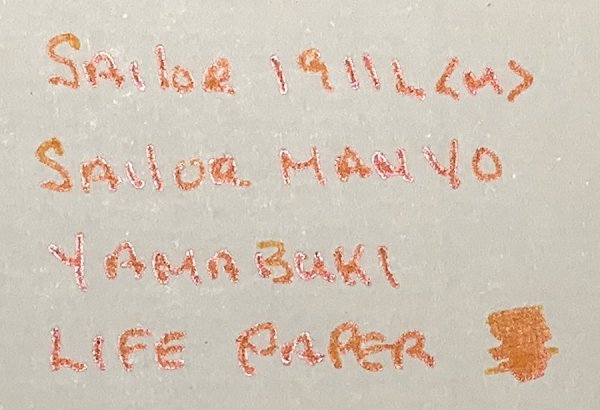 SAilor 1911L <M>
SAilor MANYO
YAMABUKI
LIFE PAPER